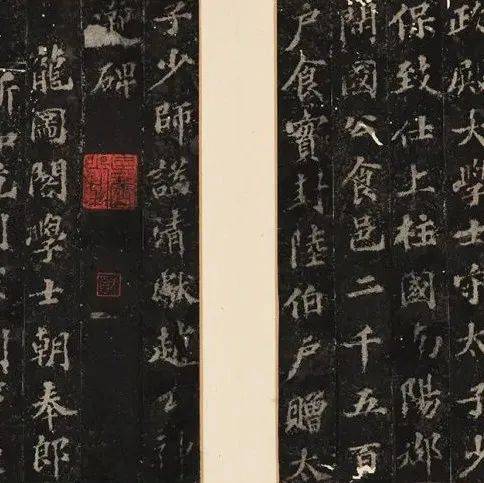 政殿大學士守太子少
保致仕上柱國陽郡
開國公食邑二千五百
戶食實封陸伯戶贈太
子少師諡清獻趙公神
道碑
龍圖閣學士朝奉郎
新知